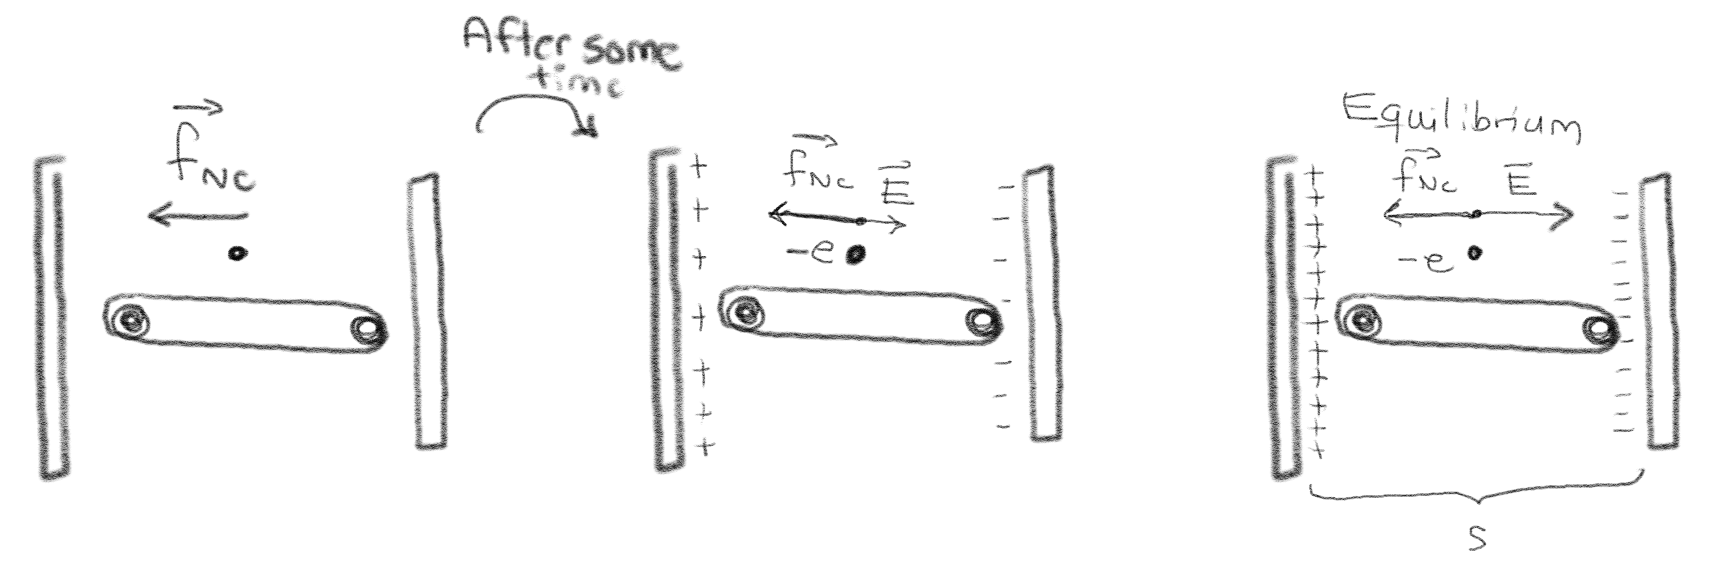 After some
time
f⃗Nc
f⃗Nc E⃗
-e
+ + + + + + +
- - - - - - -
Equilibrium
f⃗Nc E
-e
+ + + + + + + + + + + +
- - - - - - - - - - -
s